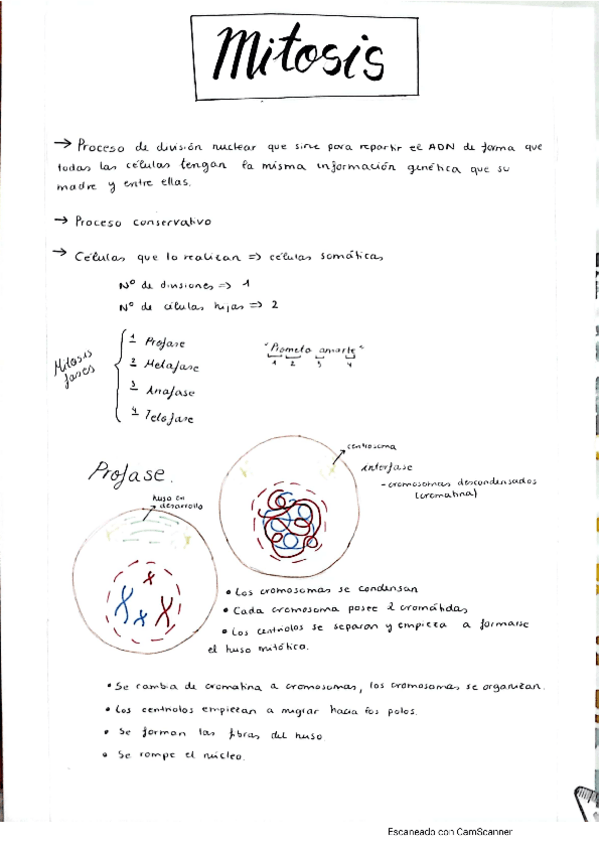 Mitosis
→ Proceso de división nuclear que sirve para repartir el ADN de forma que
todas las células tengan la misma información genética que su
madre y entre ellas.
→ Proceso conservativo
→ Células que lo realizan => células somáticas
Nº de divisiones => 1
Nº de células hijas => 2
Mitosis
fases
1 Profase
2 Metafase
3 Anafase
4 Telofase
"Prometo amarte"
1 2 3 4
Profase.
centrosoma
interfase
- cromosomas descondensados
(cromatina)
huso en
desarrollo
• Los cromosomas se condensan
• Cada cromosoma posee 2 cromátidas
• Los centriolos se separan y empieza a formarse
el huso mitótico.
• Se cambia de cromatina a cromosomas, los cromosomas se organizan.
• Los centriolos empiezan a migrar hacia los polos.
• Se forman las fibras del huso
• Se rompe el núcleo.
Escaneado con CamScanner